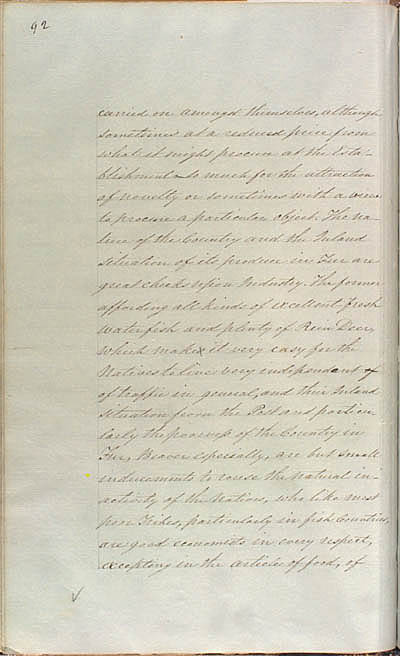 92
carried on amongst themselves, although
sometimes at a reduced price from
what it might procure at the Esta-
blishment so much for the attraction
of novelty or sometimes with a view
to procure a particular object. The na-
ture of the Country and the Inland
situation of its produce in Fur are
great checks upon Industry. The former
affording all kinds of excellent fresh
water fish and plenty of Rein Deer,
which makes it very easy for the
Natives to live very independant
of traffic in general, and their Inland
situation from the Post and particu
larly the poorness of the Country in
Fur, Beaver especially, are but small
inducements to rouse the natural in-
activity of the Natives, who like most
poor Tribes, particularly in fish Countries,
are good economists in every respect,
excepting in the articles of food, of